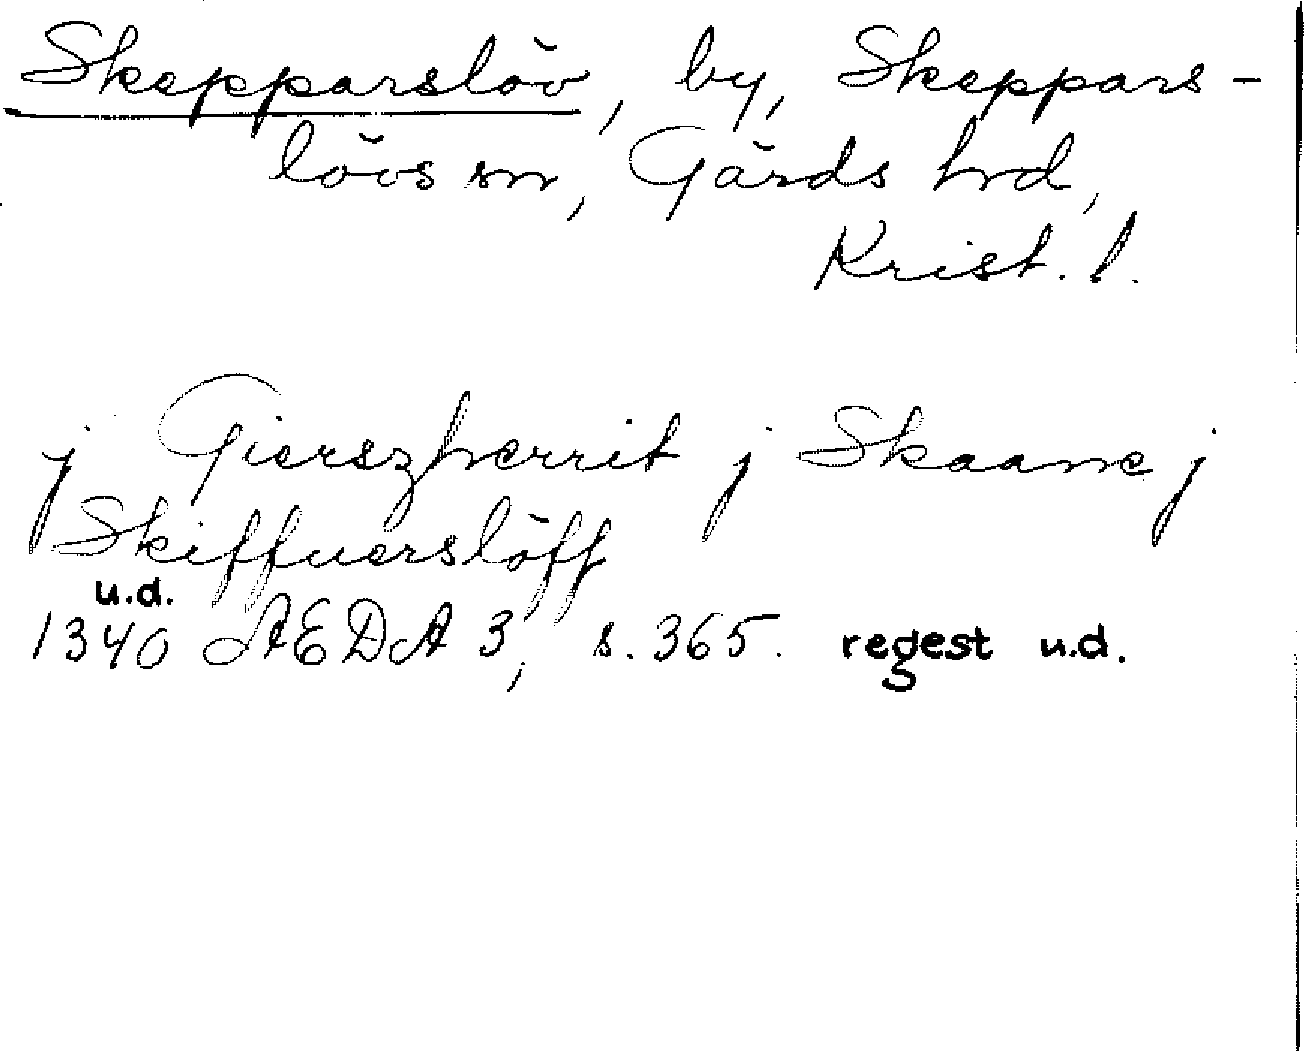 Skepparslöv, by, Skeppars-
lövs sn, Gärds hrd,
Krist. l.
j Gierszherrit j Skaane j
Skiffuerslöff
u.d.
1340 AEDA 3, s. 365. regest u.d.